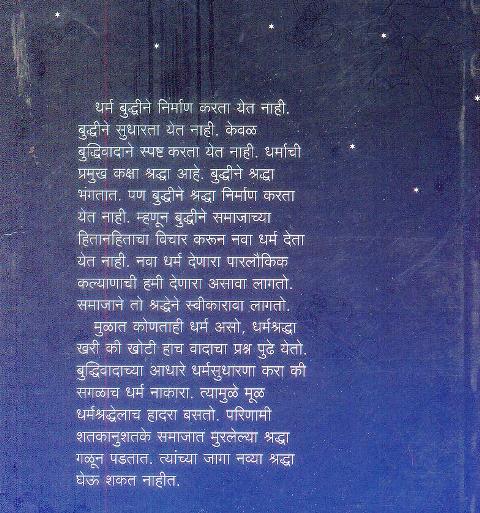 धर्म बुद्धीने निर्माण करता येत नाही.
बुद्धीने सुधारता येत नाही. केवळ
बुद्धिवादाने स्पष्ट करता येत नाही. धर्माची
प्रमुख कक्षा श्रद्धा आहे. बुद्धीने श्रद्धा
भंगतात. पण बुद्धीने श्रद्धा निर्माण करता
येत नाही. म्हणून बुद्धीने समाजाच्या
हितानहिताचा विचार करून नवा धर्म देता
येत नाही. नवा धर्म देणारा पारलौकिक
कल्याणाची हमी देणारा असावा लागतो.
समाजाने तो श्रद्धेने स्वीकारावा लागतो.
मुळात कोणताही धर्म असो, धर्मश्रद्धा
खरी की खोटी हाच वादाचा प्रश्न पुढे येतो.
बुद्धिवादाच्या आधारे धर्मसुधारणा करा की
सगळाच धर्म नाकारा. त्यामुळे मूळ
धर्मश्रद्धेलाच हादरा बसतो. परिणामी
शतकानुशतके समाजात मुरलेल्या श्रद्धा
गळून पडतात. त्यांच्या जागा नव्या श्रद्धा
घेऊ शकत नाहीत.